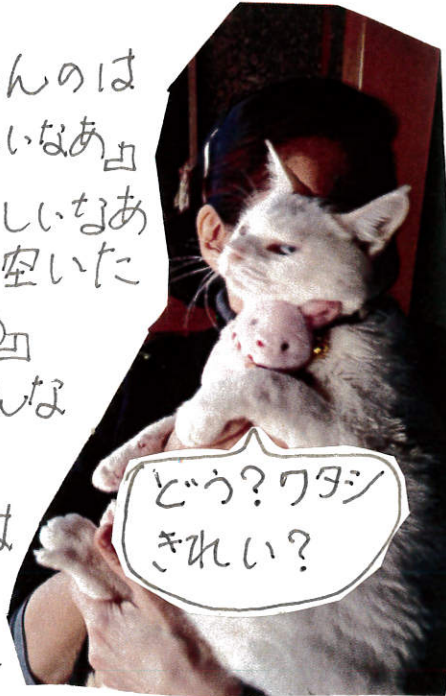 んのは
いなあ』
しいなあ
空いた
』
んな
は
どう？ワタシ
きれい？